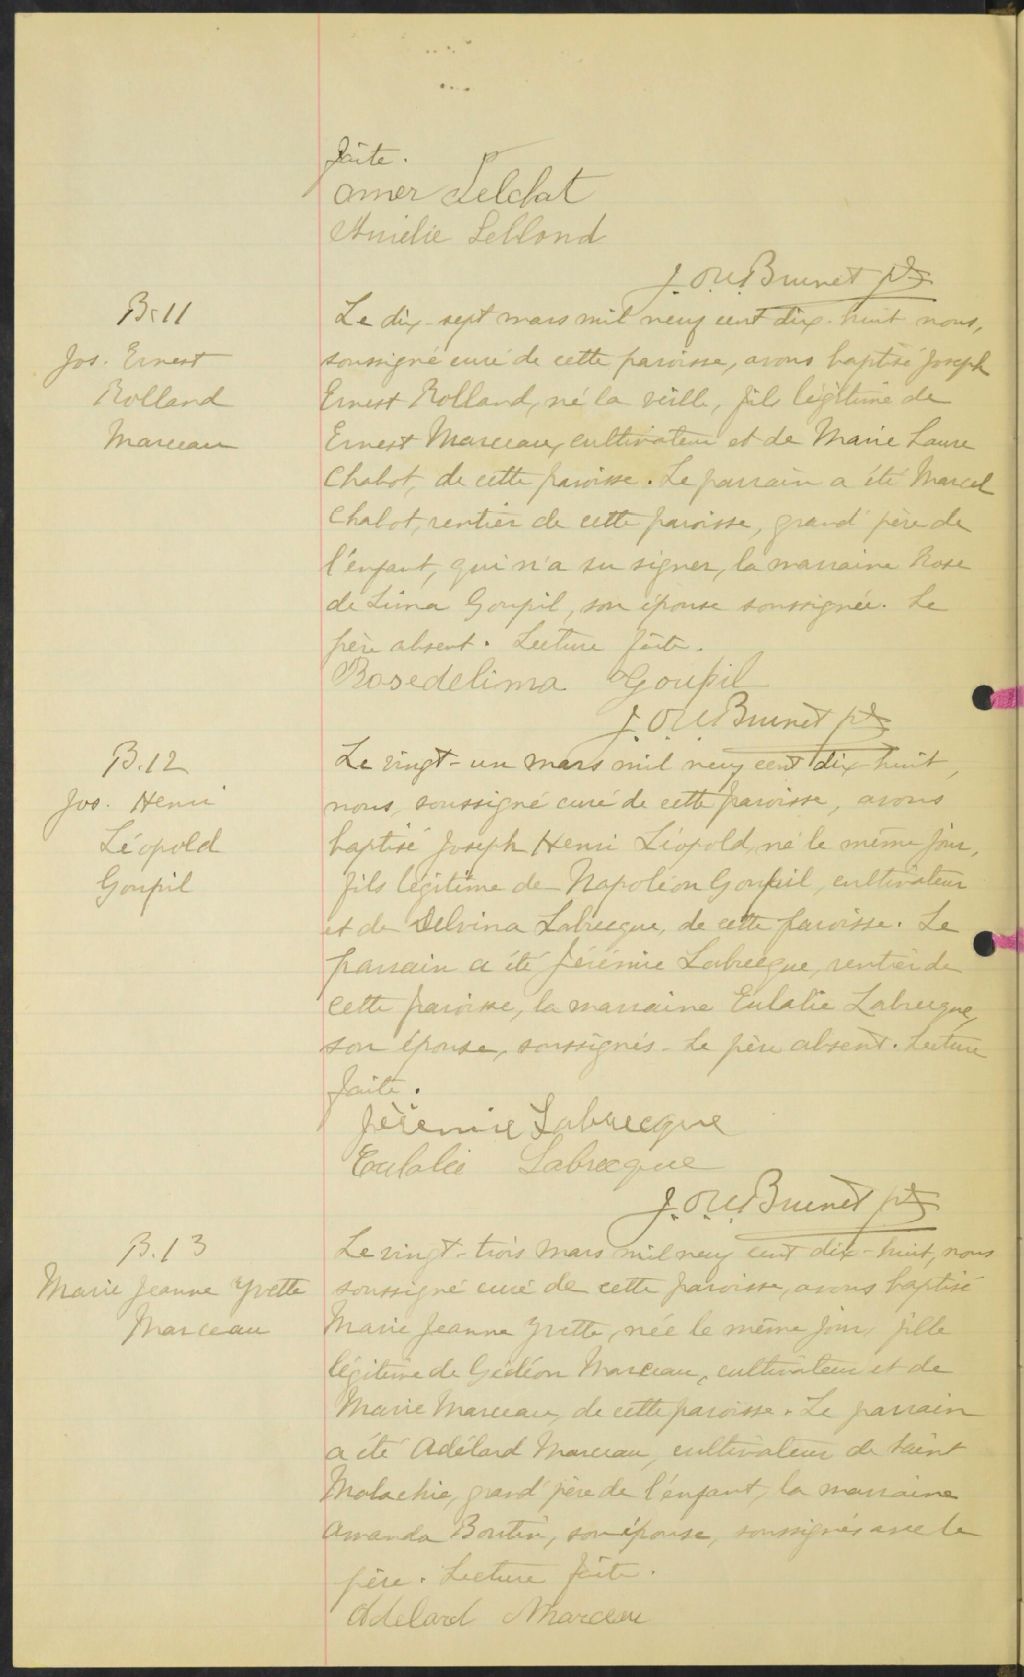 faite.
Omer Pelchat
Amélie Leblond
J. O. U. Brunet ptre
B. 11
Jos. Ernest
Rolland
Marceau
Le dix-sept mars mil neuf cent dix-huit nous,
soussigné curé de cette paroisse, avons baptisé Joseph
Ernest Rolland, né la veille, fils légitime de
Ernest Marceau, cultivateur et de Marie Laure
Chabot, de cette paroisse. Le parrain a été Marcel
Chabot, rentier de cette paroisse, grand'père de
l'enfant, qui n'a su signer, la marraine Rose
de Lima Goupil, son épouse soussignée. Le
père absent. Lecture faite.
Rosedelima Goupil
J. O. U. Brunet ptre
B. 12
Jos. Henri
Léopold
Goupil
Le vingt-un mars mil neuf cent dix-huit,
nous, soussigné curé de cette paroisse, avons
baptisé Joseph Henri Léopold, né le même jour,
fils légitime de Napoléon Goupil, cultivateur
et de Delvina Labrecque, de cette paroisse. Le
parrain a été Jérémie Labrecque, rentier de
cette paroisse, la marraine Eulalie Labrecque,
son épouse, soussignés. Le père absent. Lecture
faite.
Jérémie Labrecque
Eulalie Labrecque
J. O. U. Brunet ptre
B. 13
Marie Jeanne Yvette
Marceau
Le vingt-trois mars mil neuf cent dix-huit, nous
soussigné curé de cette paroisse, avons baptisé
Marie Jeanne Yvette, née le même jour, fille
légitime de Gédéon Marceau, cultivateur et de
Marie Marceau, de cette paroisse. Le parrain
a été Adélard Marceau, cultivateur de Saint
Malachie, grand'père de l'enfant, la marraine
Amanda Boutin, son épouse, soussignés avec le
père. Lecture faite.
Adelard Marceau